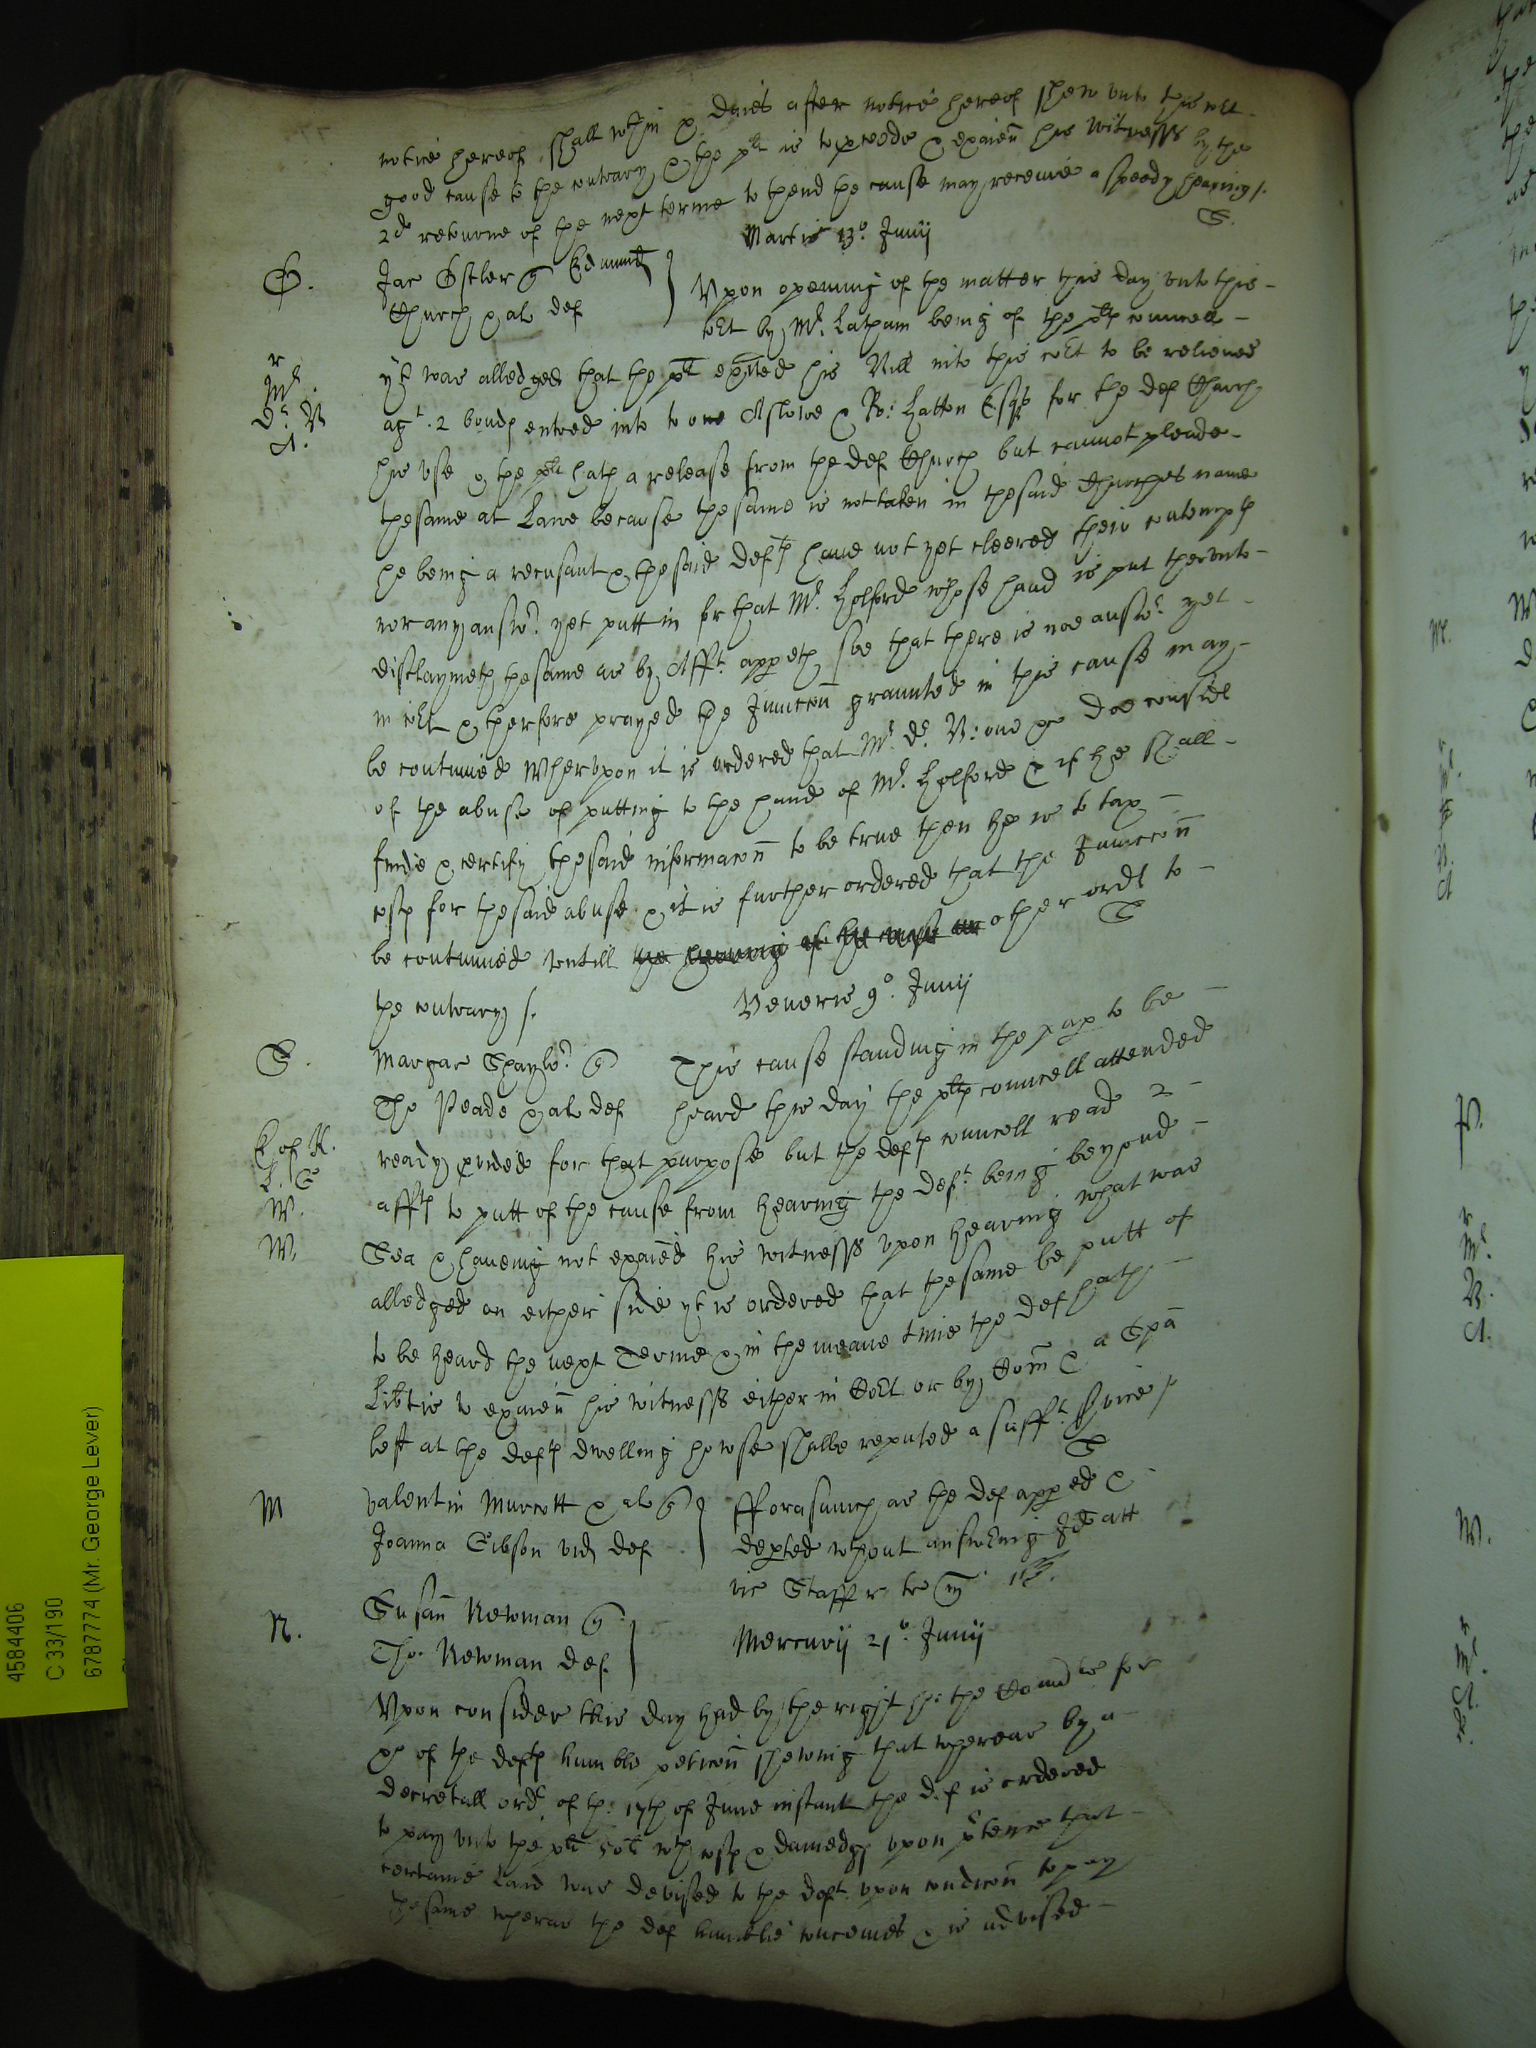 notice hereof shall wthin x daies after notice hereof shew unto this cort
good cause to the contrary & the plt is to pceede & exaien his witnesses by the
2d returne of the next terme to thend the cause may receive a speedy hearing /.
S.
Martis 13o Junij
O. Jac Ostler q Edmund
Church & al def
Upon opening of the matter this day unto this
cort by Mr. Latham being of the plts councell
yt was alledged that the plt exited his Bill into this cort to be relieved
r
Mr.
Dr. B
A.
agt. 2 bonds entred into to one Aslowe & Ro: Hatton Esqr for the def Church
his use & the plt hath a release from the def Church but cannot pleade
the same at Lawe because the same is not taken in the said Churches name
he being a recusant & the said defts have not yet cleered their contempts
nor any answr. yet putt in for that Mr. Holford whose hand is put therunto
disclaymeth the same as by Afft. appeth soe that there is noe answr. yet
in cort & therfore prayed the Juncon graunted in this cause may
be contynued Wherupon it is ordered that Mr. Dr. B: one &c doe consider
of the abuse of putting to the hand of Mr. Holford & if he shall
finde & certify the said informacon to be true then he is to tax
costs for the said abuse & it is further ordered that the Juncon
be contynued untill the hearing of the cause or other order to
the contrary /.
S
Veneris 9o. Junij
S. Margar Thaylor. q
Tho Reade & al def
This cause standing in the pap to be
heard this day the plts councell attended
E of K.
L. S
W.
W.
ready pvided for that purpose but the defts councell read 2
affts to putt of the cause from hearing the deft. being beyond
Sea & haveing not exaied his witnesses upon hearing what was
alledged on either side yt is ordered that the same be putt of
to be heard the next Terme & in the meane time the def hath
Libtie to exaien his witnesses either in Cort or by Com & a Spa
left at the defts dwelling howse shalbe reputed a sufft. Service /
S
M Valentin Murcott & al q
Joanna Gibson vid def
Fforasmuch as the def apped &
depted wthout answering Jd att
vic Staff r
N. Susan Newman q
Tho. Newman def
Mercurij 21o. Junij
Upon consider this day had by the right ho: the for
of the defts humble peticon shewing that whereas by a
decretall ordr. of the 17th of June instant the def is ordered
to pay unto the plt 50li wth costs & damedgs upon ptence that
certaine Land was devised to the deft. upon condicon to pay
the same wheras the def humblie conceives & is advised
4584406
C 33/190
6787774 (Mr. George Lever)